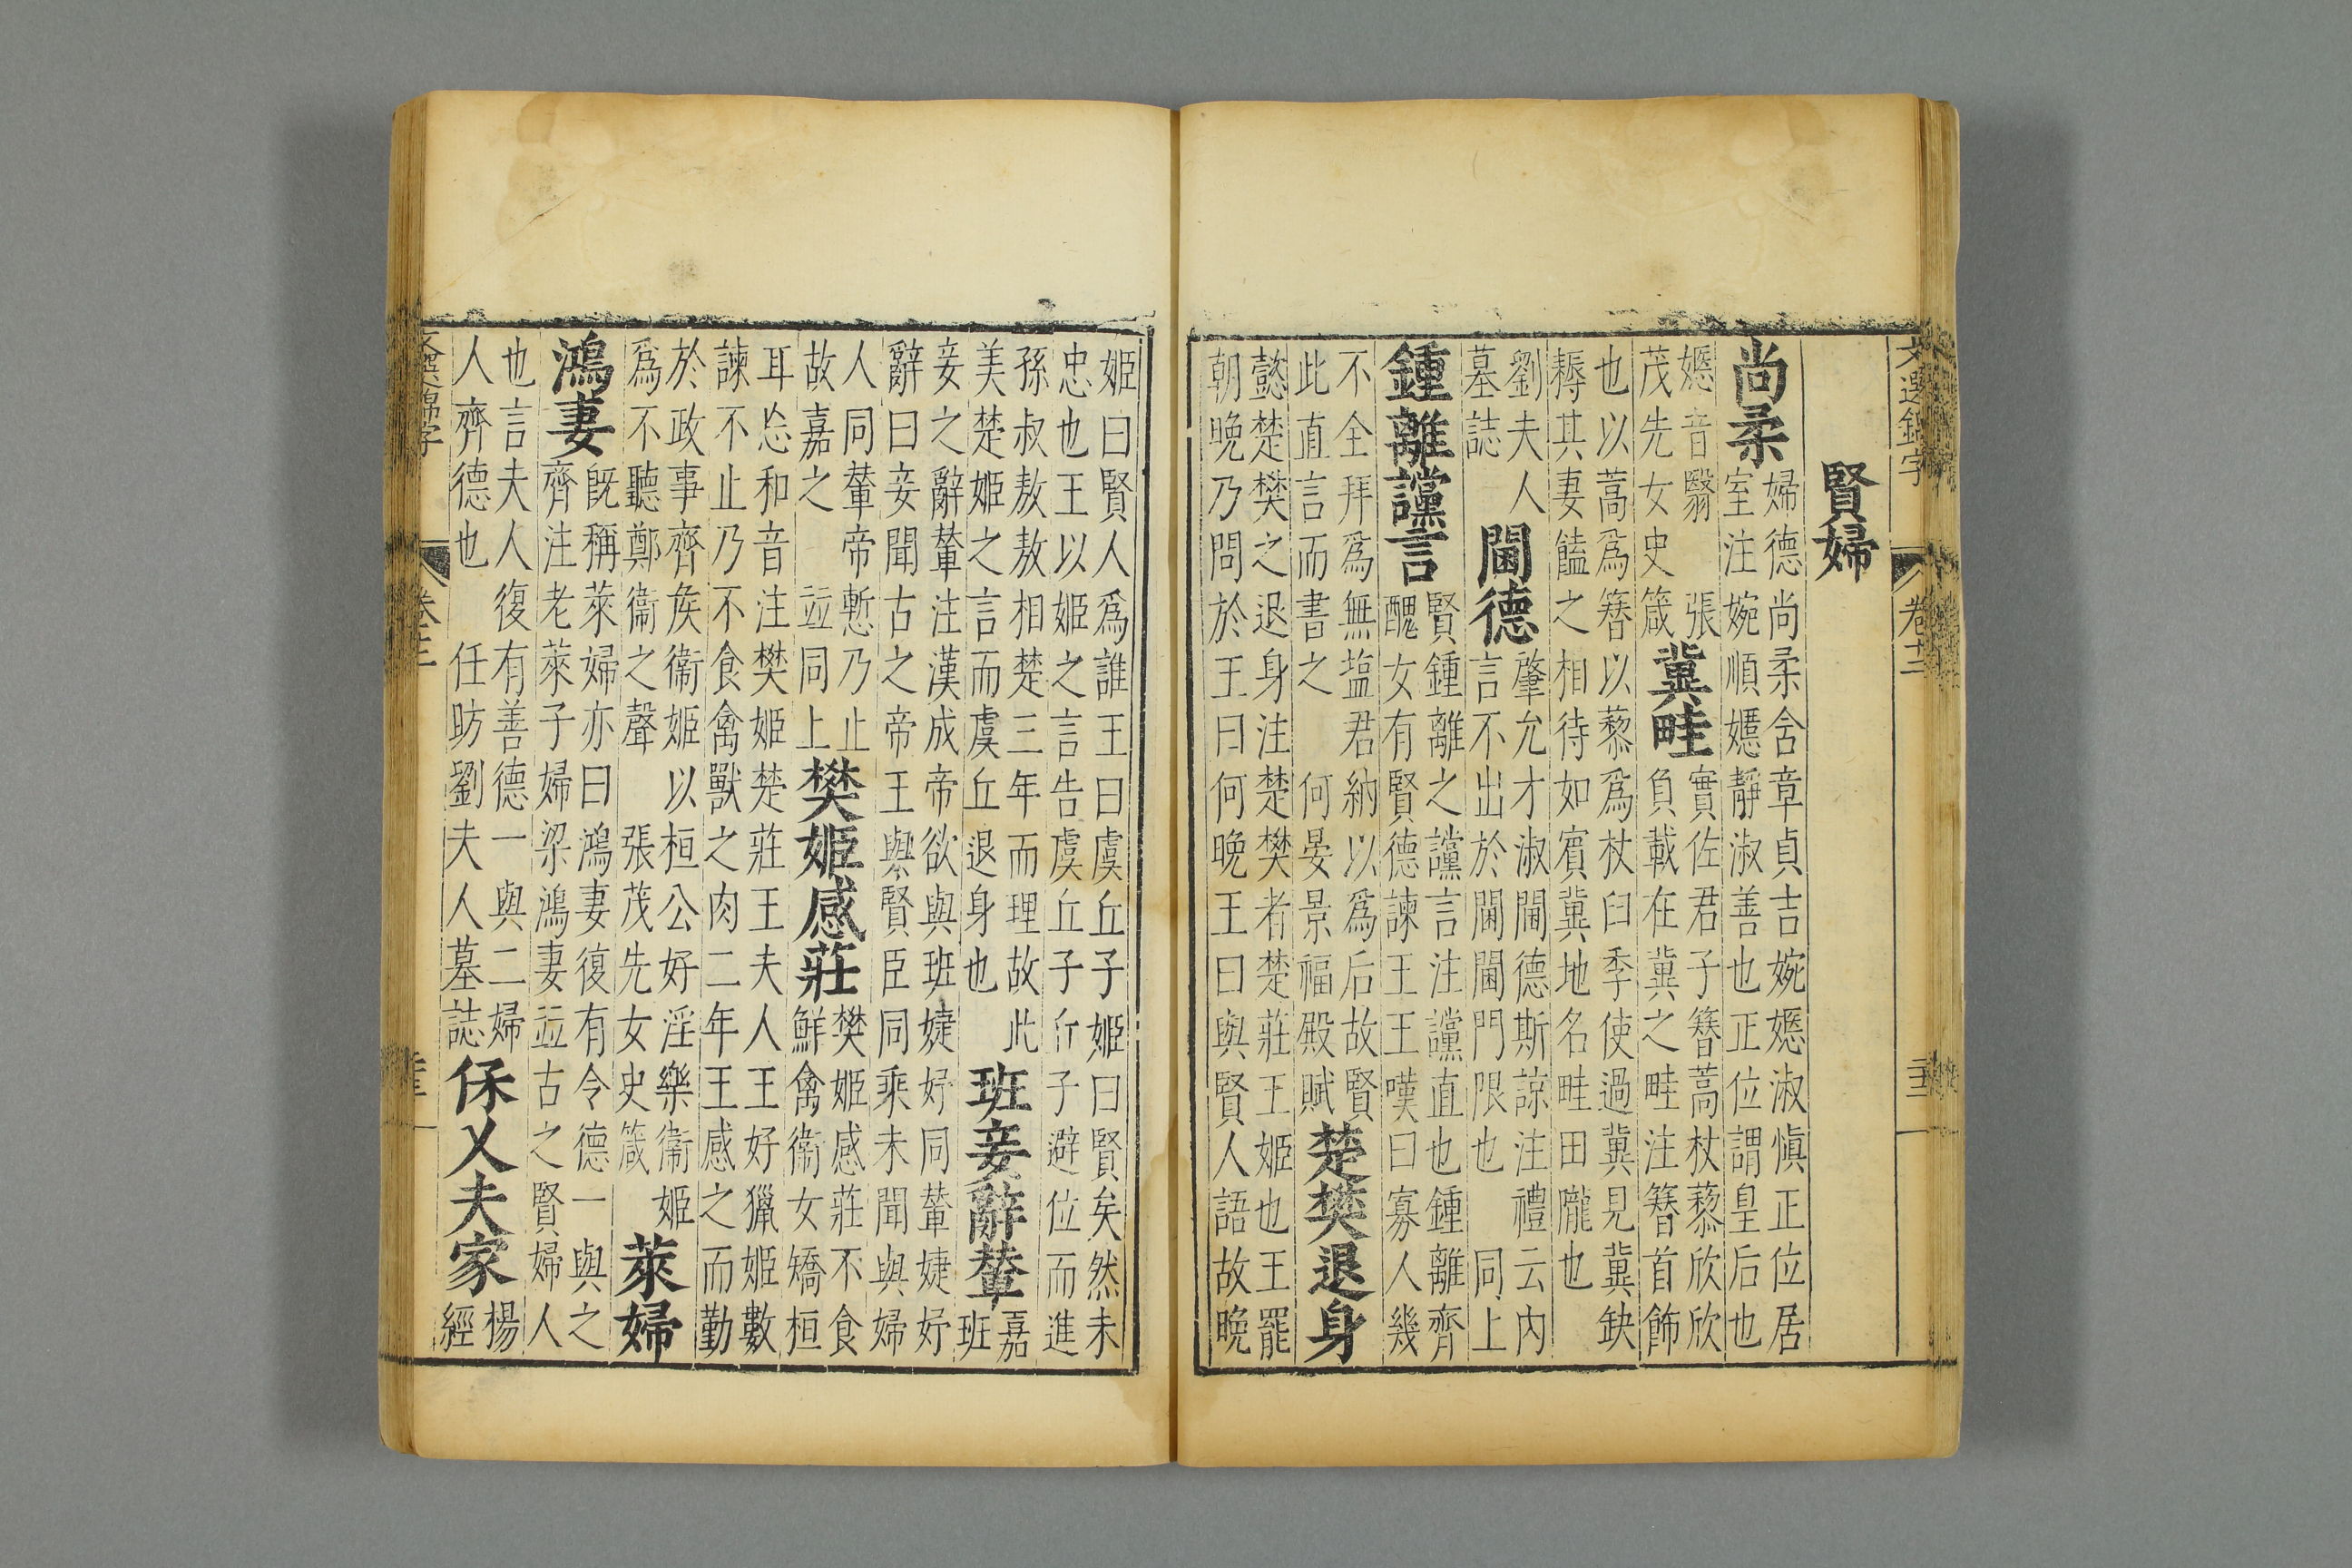 文選錦字 卷十二
賢婦
尚柔
婦德尚柔含章貞吉婉嫕淑慎正位居
室注婉順嫕靜淑善也正位謂皇后也
嫕音翳 張
茂先女史箴
冀畦
實佐君子簪蒿杖藜欣欣
負載在冀之畦注簪首飾
也以蒿爲簪以藜爲杖臼季使過冀見冀缺
耨其妻饁之相待如賓冀地名畦田隴也
劉夫人
墓誌
閫德
肇允才淑閫德斯諒注禮云內
言不出於閫閫門限也 同上
鍾離讜言
賢鍾離之讜言注讜直也鍾離齊
醜女有賢德諫王王嘆曰寡人幾
不全拜爲無塩君納以爲后故賢
此直言而書之 何晏景福殿賦
楚樊退身
懿楚樊之退身注楚樊者楚莊王姬也王罷
朝晚乃問於王曰何晚王曰與賢人語故晚
姬曰賢人爲誰王曰虞丘子姬曰賢矣然未
忠也王以姬之言告虞丘子丘子避位而進
孫叔敖敖相楚三年而理故此
美楚姬之言而虞丘退身也
班妾辭輦
嘉
班
妾之辭輦注漢成帝欲與班婕妤同輦婕妤
辭曰妾聞古之帝王與賢臣同乘未聞與婦
人同輦帝慙乃止
故嘉之 並同上
樊姬感莊
樊姬感莊不食
鮮禽衞女矯桓
耳忘和音注樊姬楚莊王夫人王好獵姬數
諫不止乃不食禽獸之肉二年王感之而勤
於政事齊侯衞姬以桓公好淫樂衞姬
爲不聽鄭衞之聲 張茂先女史箴
萊婦
鴻妻
既稱萊婦亦曰鴻妻復有令德一與之
齊注老萊子婦梁鴻妻並古之賢婦人
也言夫人復有善德一與二婦
人齊德也 任昉劉夫人墓誌
保乂夫家
楊
經
文選錦字